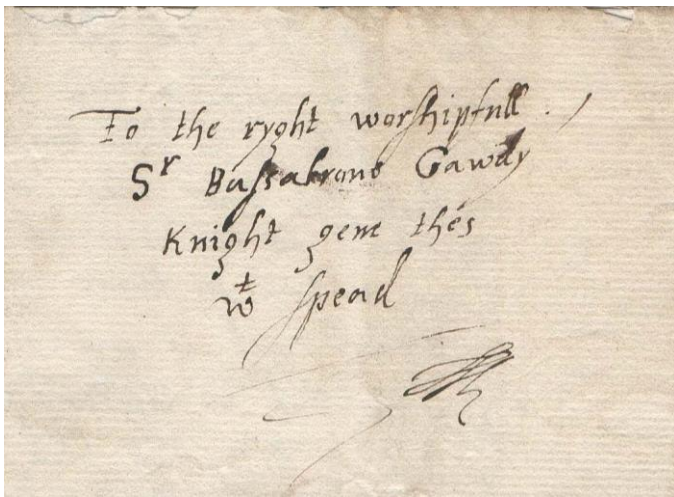 To the ryght worshipfull
Sr Bassabrons Gawdy
Knight geue thes
wt spead